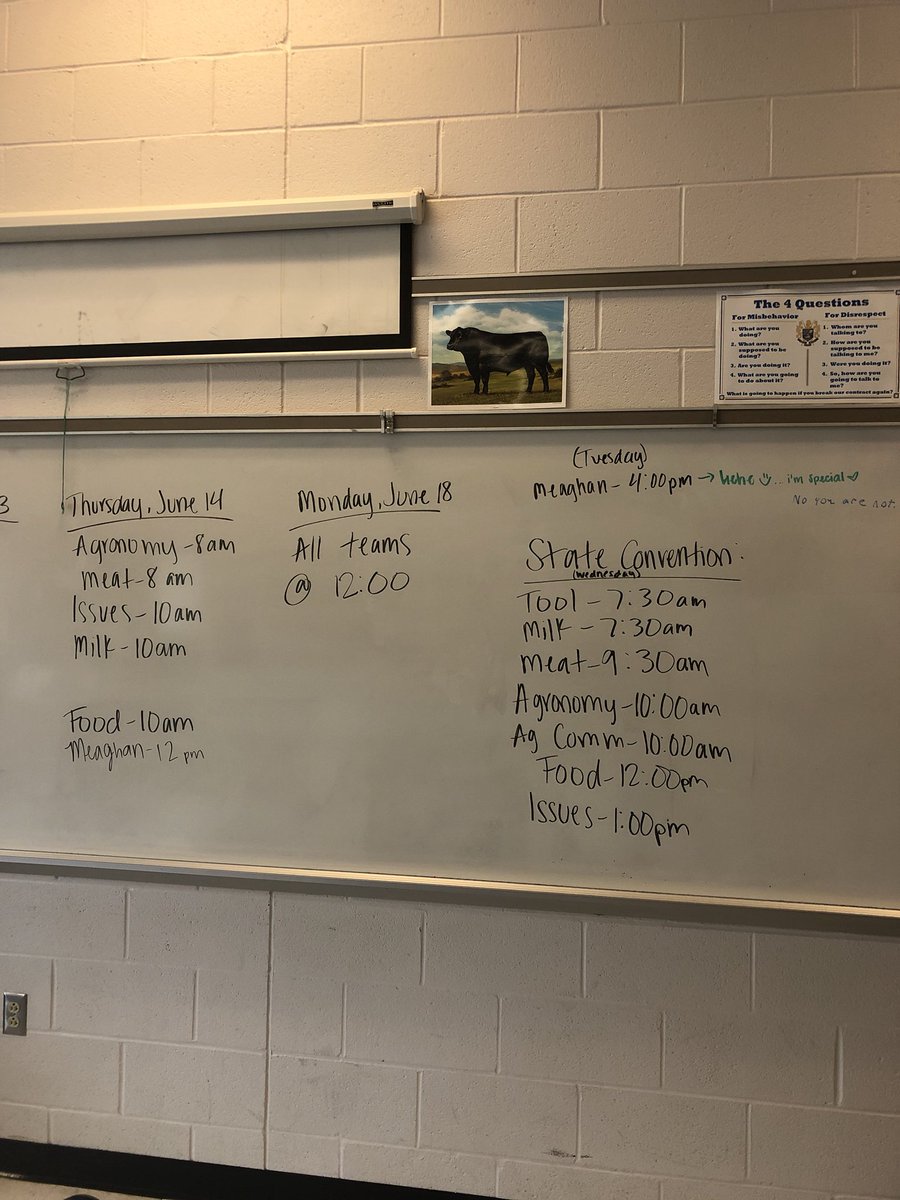 The 4 Questions
For Misbehavior
1. What are you doing?
2. What are you supposed to be doing?
3. Are you doing it?
4. What are you going to do about it?
For Disrespect
1. Whom are you talking to?
2. How are you supposed to be talking to me?
3. Were you doing it?
4. So, how are you going to talk to me?
What is going to happen if you break our contract again?
3
Thursday, June 14
Agronomy - 8am
Meat - 8 am
Issues - 10am
Milk - 10am
Food - 10am
Meaghan - 12 pm
Monday, June 18
All teams
@ 12:00
(Tuesday)
Meaghan - 4:00pm → hehe ☺... i'm special ♡
No you are not.
State Convention:
(Wednesday)
Tool - 7:30am
Milk - 7:30am
Meat - 9:30am
Agronomy - 10:00am
Ag Comm - 10:00am
Food - 12:00pm
Issues - 1:00pm